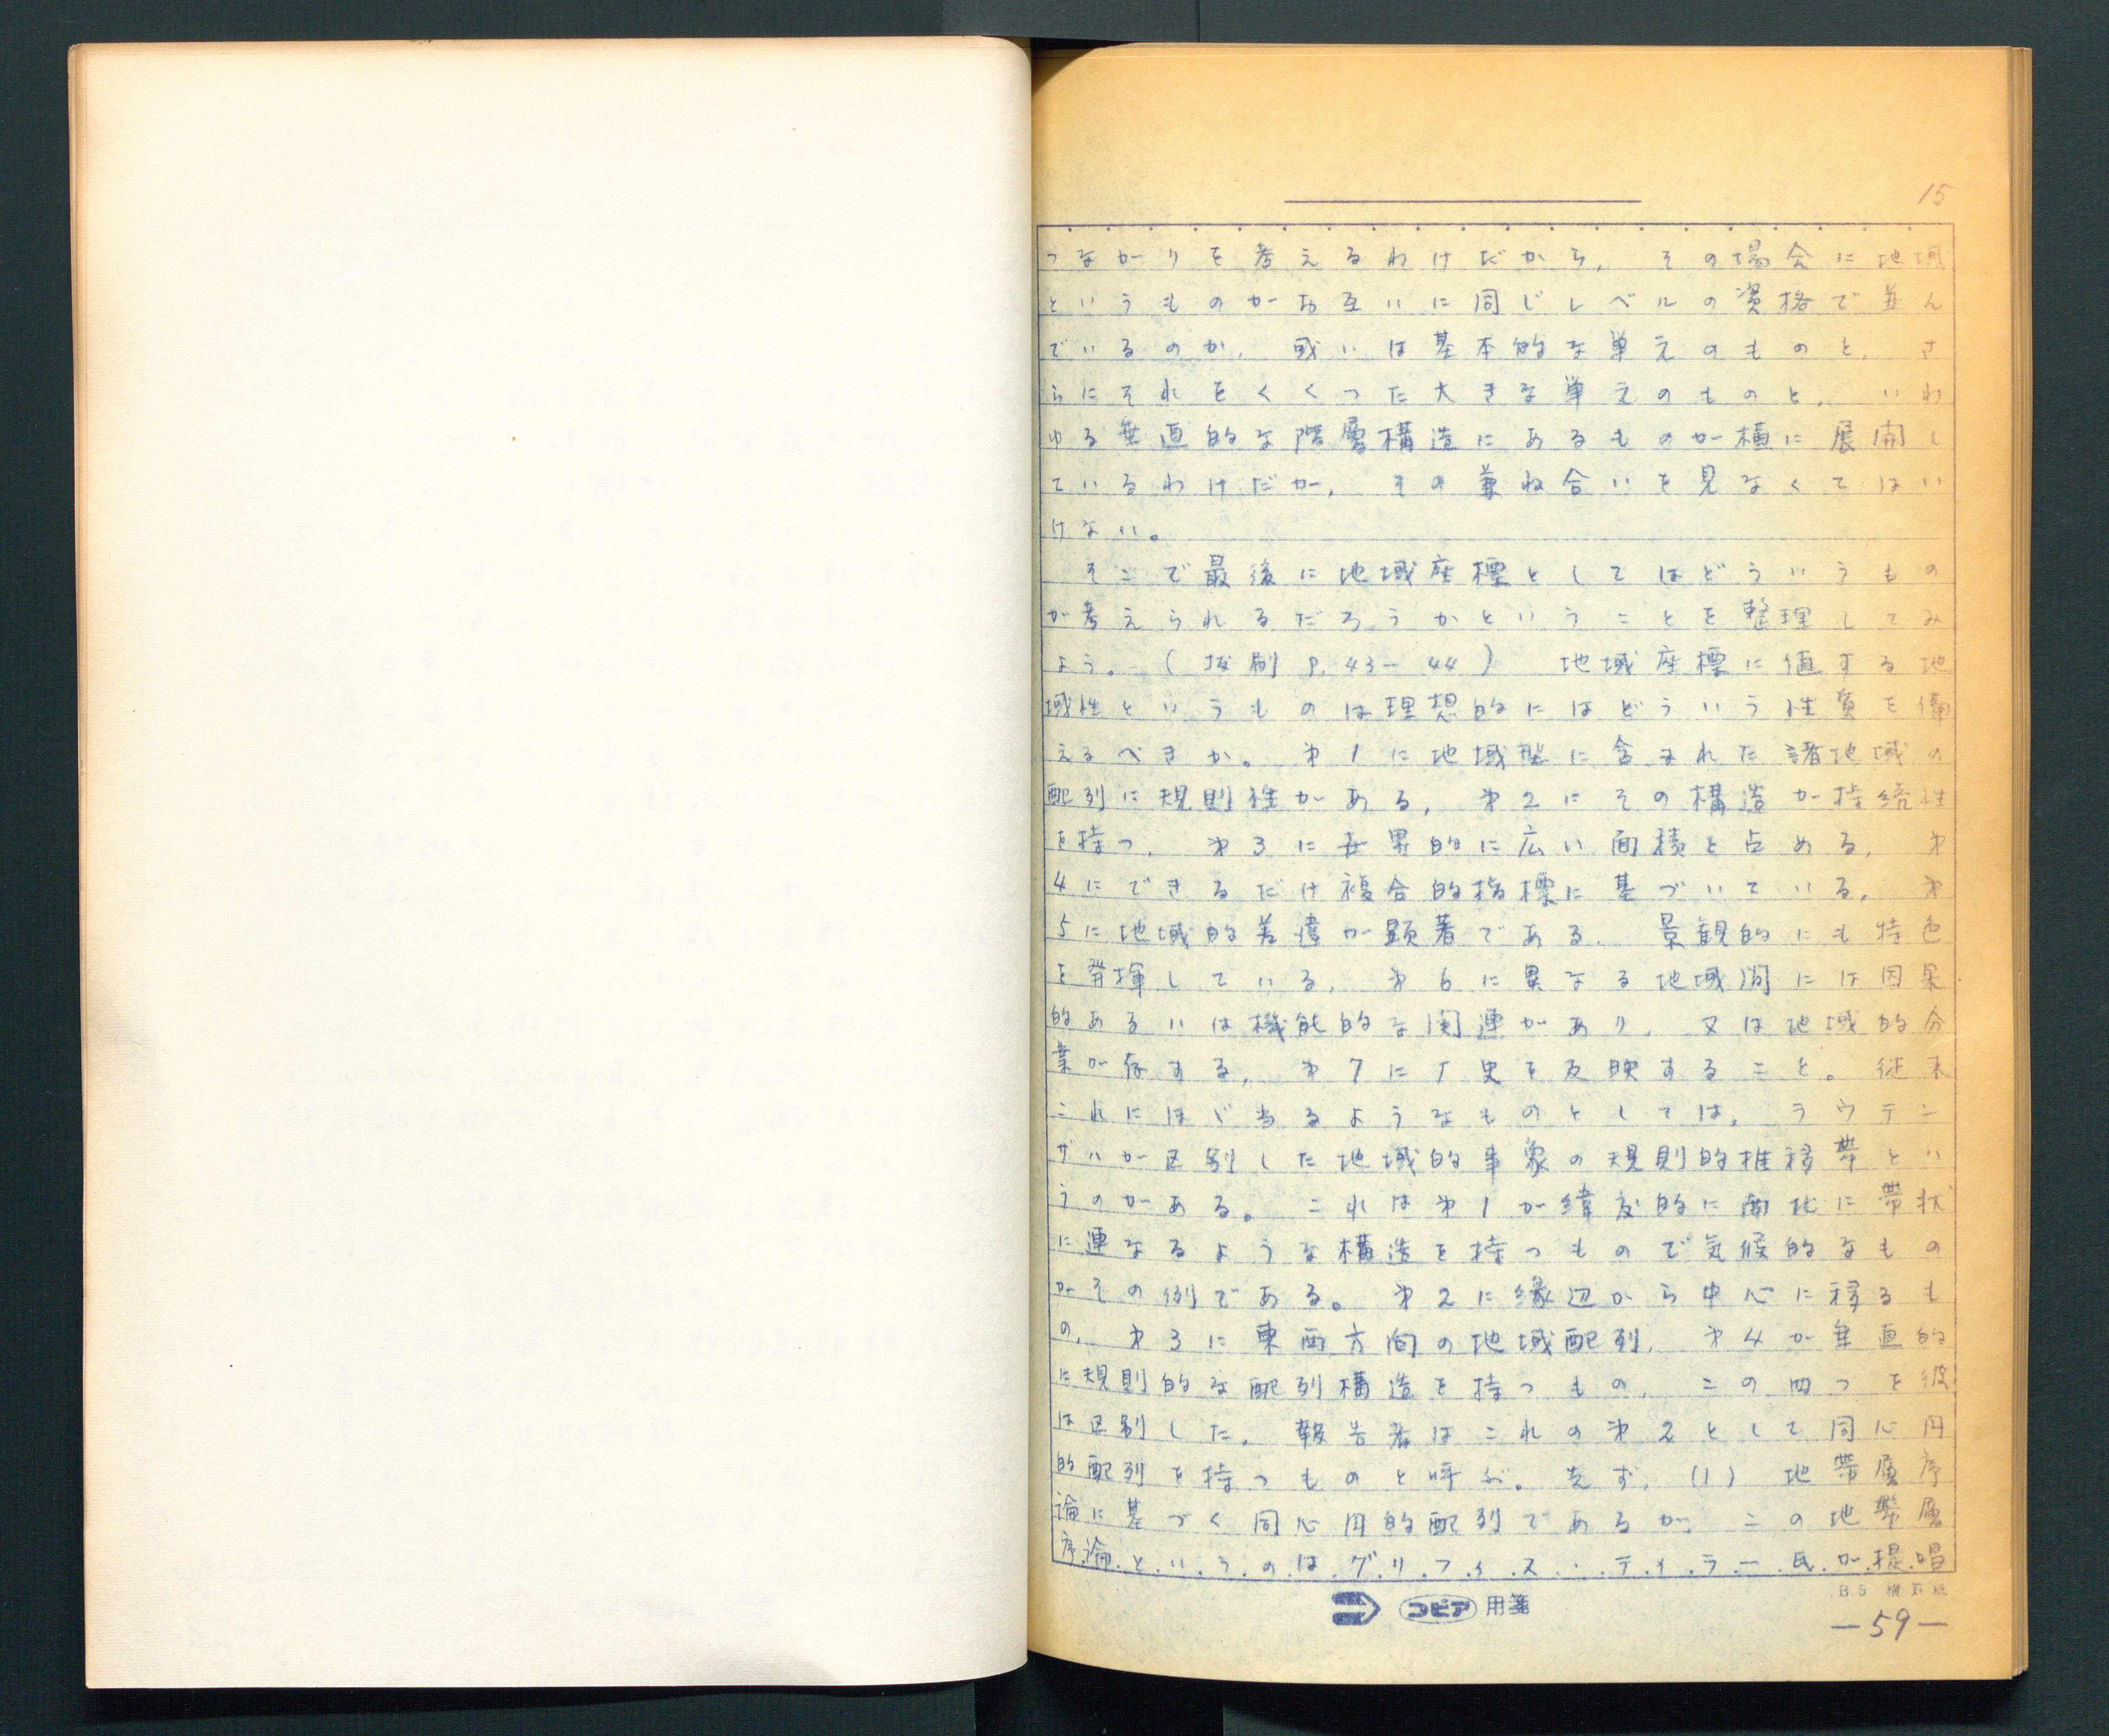 15
つながりを考えるわけだから、その場合に地域
というものがお互いに同じレベルの資格で並ん
でいるのか、或いは基本的な単元のものと、さ
らにそれをくくった大きな単元のものと、いわ
ゆる垂直的な階層構造にあるものが横に展開し
ているわけだか、その兼ね合いを見なくてはい
けない。
そこで最後に地域座標としてはどういうもの
が考えられるだろうかということを整理してみ
よう。(抜刷P.43-44) 地域座標に値する地
域性というものは理想的にはどういう性質を備
えるべきか。第1に地域型に含まれた諸地域の
配列に規則性がある、第2にその構造が持続性
を持つ、第3に世界的に広い面積を占める、第
4にできるだけ複合的指標に基づいている、第
5に地域的差違が顕著である、景観的にも特色
を発揮している、第6に異なる地域間には因果
的あるいは機能的な関連があり、又は地域的分
業が存する、第7に歴史を反映すること。従来
これにほゞ当るようなものとしては、ラウテン
ザハが区別した地域的事象の規則的推移帯とい
うのがある。これは第1が緯度的に南北に帯状
に連なるような構造を持つもので気候的なもの
がその例である。第2に縁辺から中心に移るも
の、第3に東西方向の地域配列、第4が垂直的
に規則的な配列構造を持つもの、この四つを彼
は区別した。報告者はこれの第2として同心円
的配列を持つものと呼ぶ。先ず、(1) 地帯層序
論に基づく同心円的配列であるが、この地帯層
序論というのはグリフィス・テイラー氏が提唱
コピア 用箋
B5 横罫紙
—59—